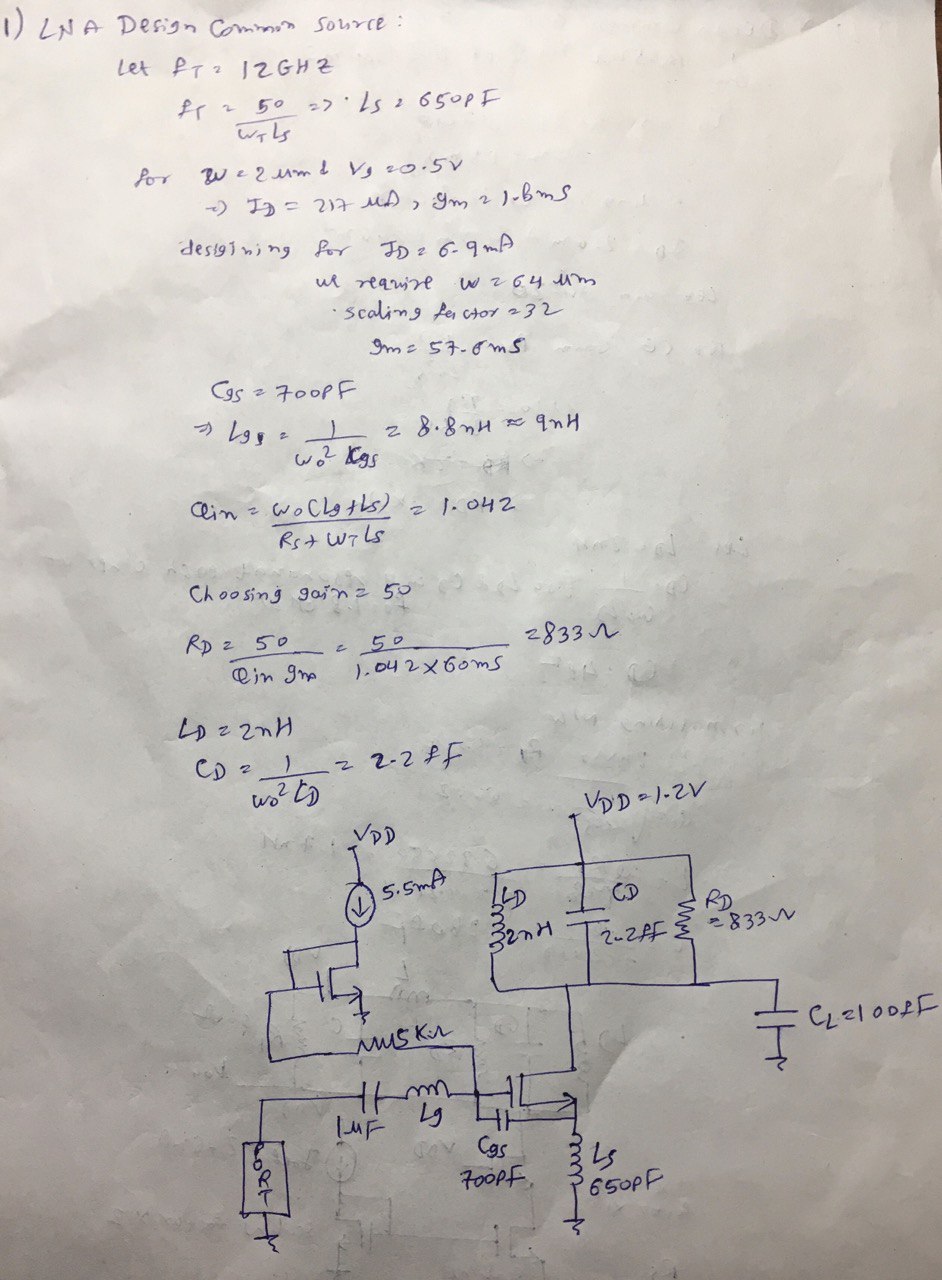 1) LNA Design Common Source :
Let fT = 12GHZ
fT = 50 / WTLS => LS = 650PF
for W = 2 um & Vg = 0.5V
=> ID = 217 uA, gm = 1.8mS
desigining for ID = 6.9mA
we require W = 64 um
scaling factor = 32
gm = 57.6mS
Cgs = 700PF
=> Lgs = 1 / Wo² Cgs = 8.8nH ≈ 9nH
Qin = Wo(Lg+LS) / RS + WTLS = 1.042
Choosing gain = 50
RD = 50 / Qin gm = 50 / 1.042 X 60mS = 833Ω
LD = 2nH
CD = 1 / Wo² LD = 2.2fF
VDD = 1.2V
VDD
5.5mA
LD
2nH
CD
2.2fF
RD
= 833Ω
CL = 100fF
5KΩ
1uF
Lg
Cgs
700PF
LS
650PF
PORT